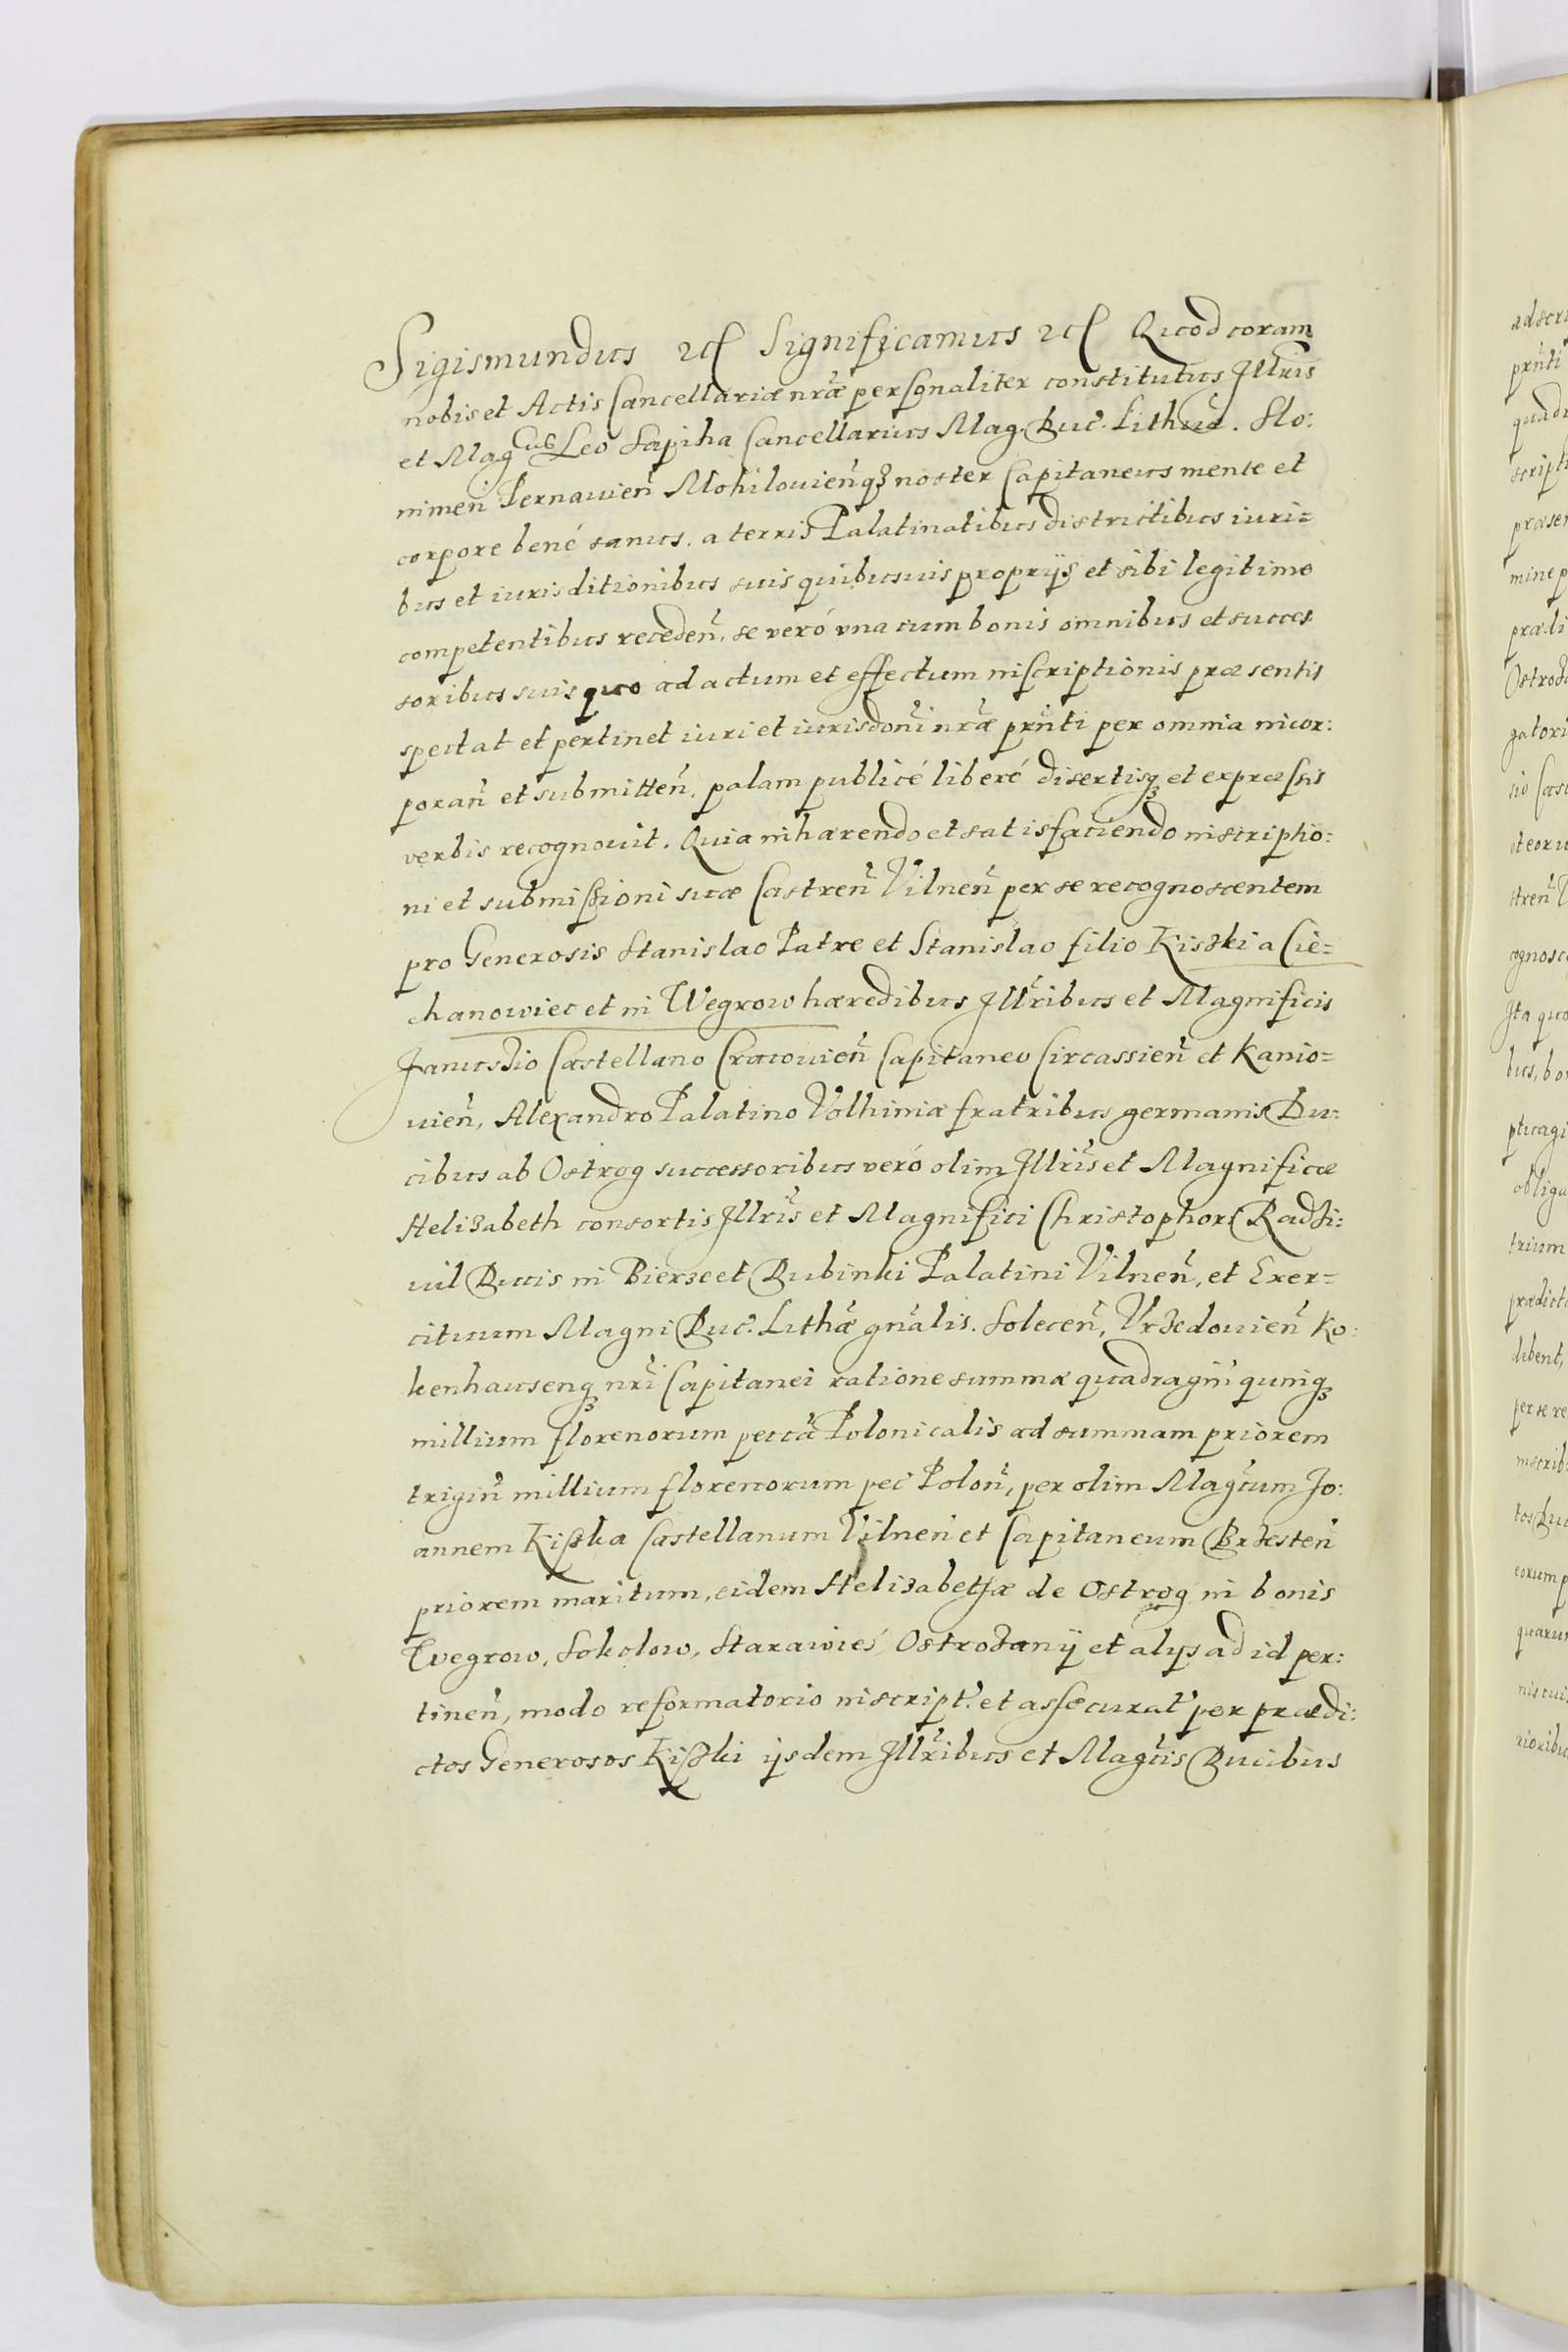 Sigismundus etc Significamus etc Quod coram
nobis et Actis Cancellariæ nr̃æ personaliter constitutus Illris
et Mag^cus Leo Sapiha Cancellarius Mag. Duc. Lithuæ. Slo:
nimeñ Pernauieñ Mohilouieñq3 noster Capitaneus mente et
corpore bené sanus. a terris Palatinatibus districtibus iuri=
bus et iurisditionibus suis quibusuis proprijs et sibi legitime
competentibus recedeñ, se veró vna cum bonis omnibus et succes
soribus suis quo ad actum et effectum inscriptionis præsentis
spectat et pertinet iuri et iurisdoñi nr̃æ prñti per omnia incor:
porañ et submitteñ, palam publicé liberé disertisq3 et expræssis
verbis recognouit. Quia inhærendo et satisfaciendo inscriptio:
ni et submissioni suæ Castreñ Vilneñ per se recognoscentem
pro Generosis Stanislao Patre et Stanislao filio Kiszki a Cie=
chanowiec et in Wegrow hæredibus Illr̃ibus et Magnificis
Janussio Castellano Cracouieñ Capitaneo Circassieñ et Kanio=
uieñ, Alexandro Palatino Volhiniæ fratribus germanis Du=
cibus ab Ostrog successoribus veró olim Illris et Magnificæ
Helizabeth consortis Illris et Magnifici Christophori Radzi:
uil Ducis in Bierze et Dubinki Palatini Vilneñ, et Exer=
cituum Magni Duc. Lithæ gñalis. Soleceñ, Vrzedouieñ Ko:
kenhausenq3 nri Capitanei ratione summæ quadragiñ quinq3
millium florenorum pecuæ Polonicalis ad summam priorem
trigiñ millium florenorum pec Poloñ, per olim Magcum Jo:
annem Kiszka Castellanum Vilneñ et Capitaneum Brzesteñ
priorem maritum, eidem Helizabethæ de Ostrog in bonis
Wegrow, Sokolow, Starawieś Ostrozanÿ et alijs ad id per:
tineñ, modo reformatorio inscript. et assecurat per prædi:
ctos Generosos Kiszki ijsdem Illr̃ibus et Magcis Ducibus